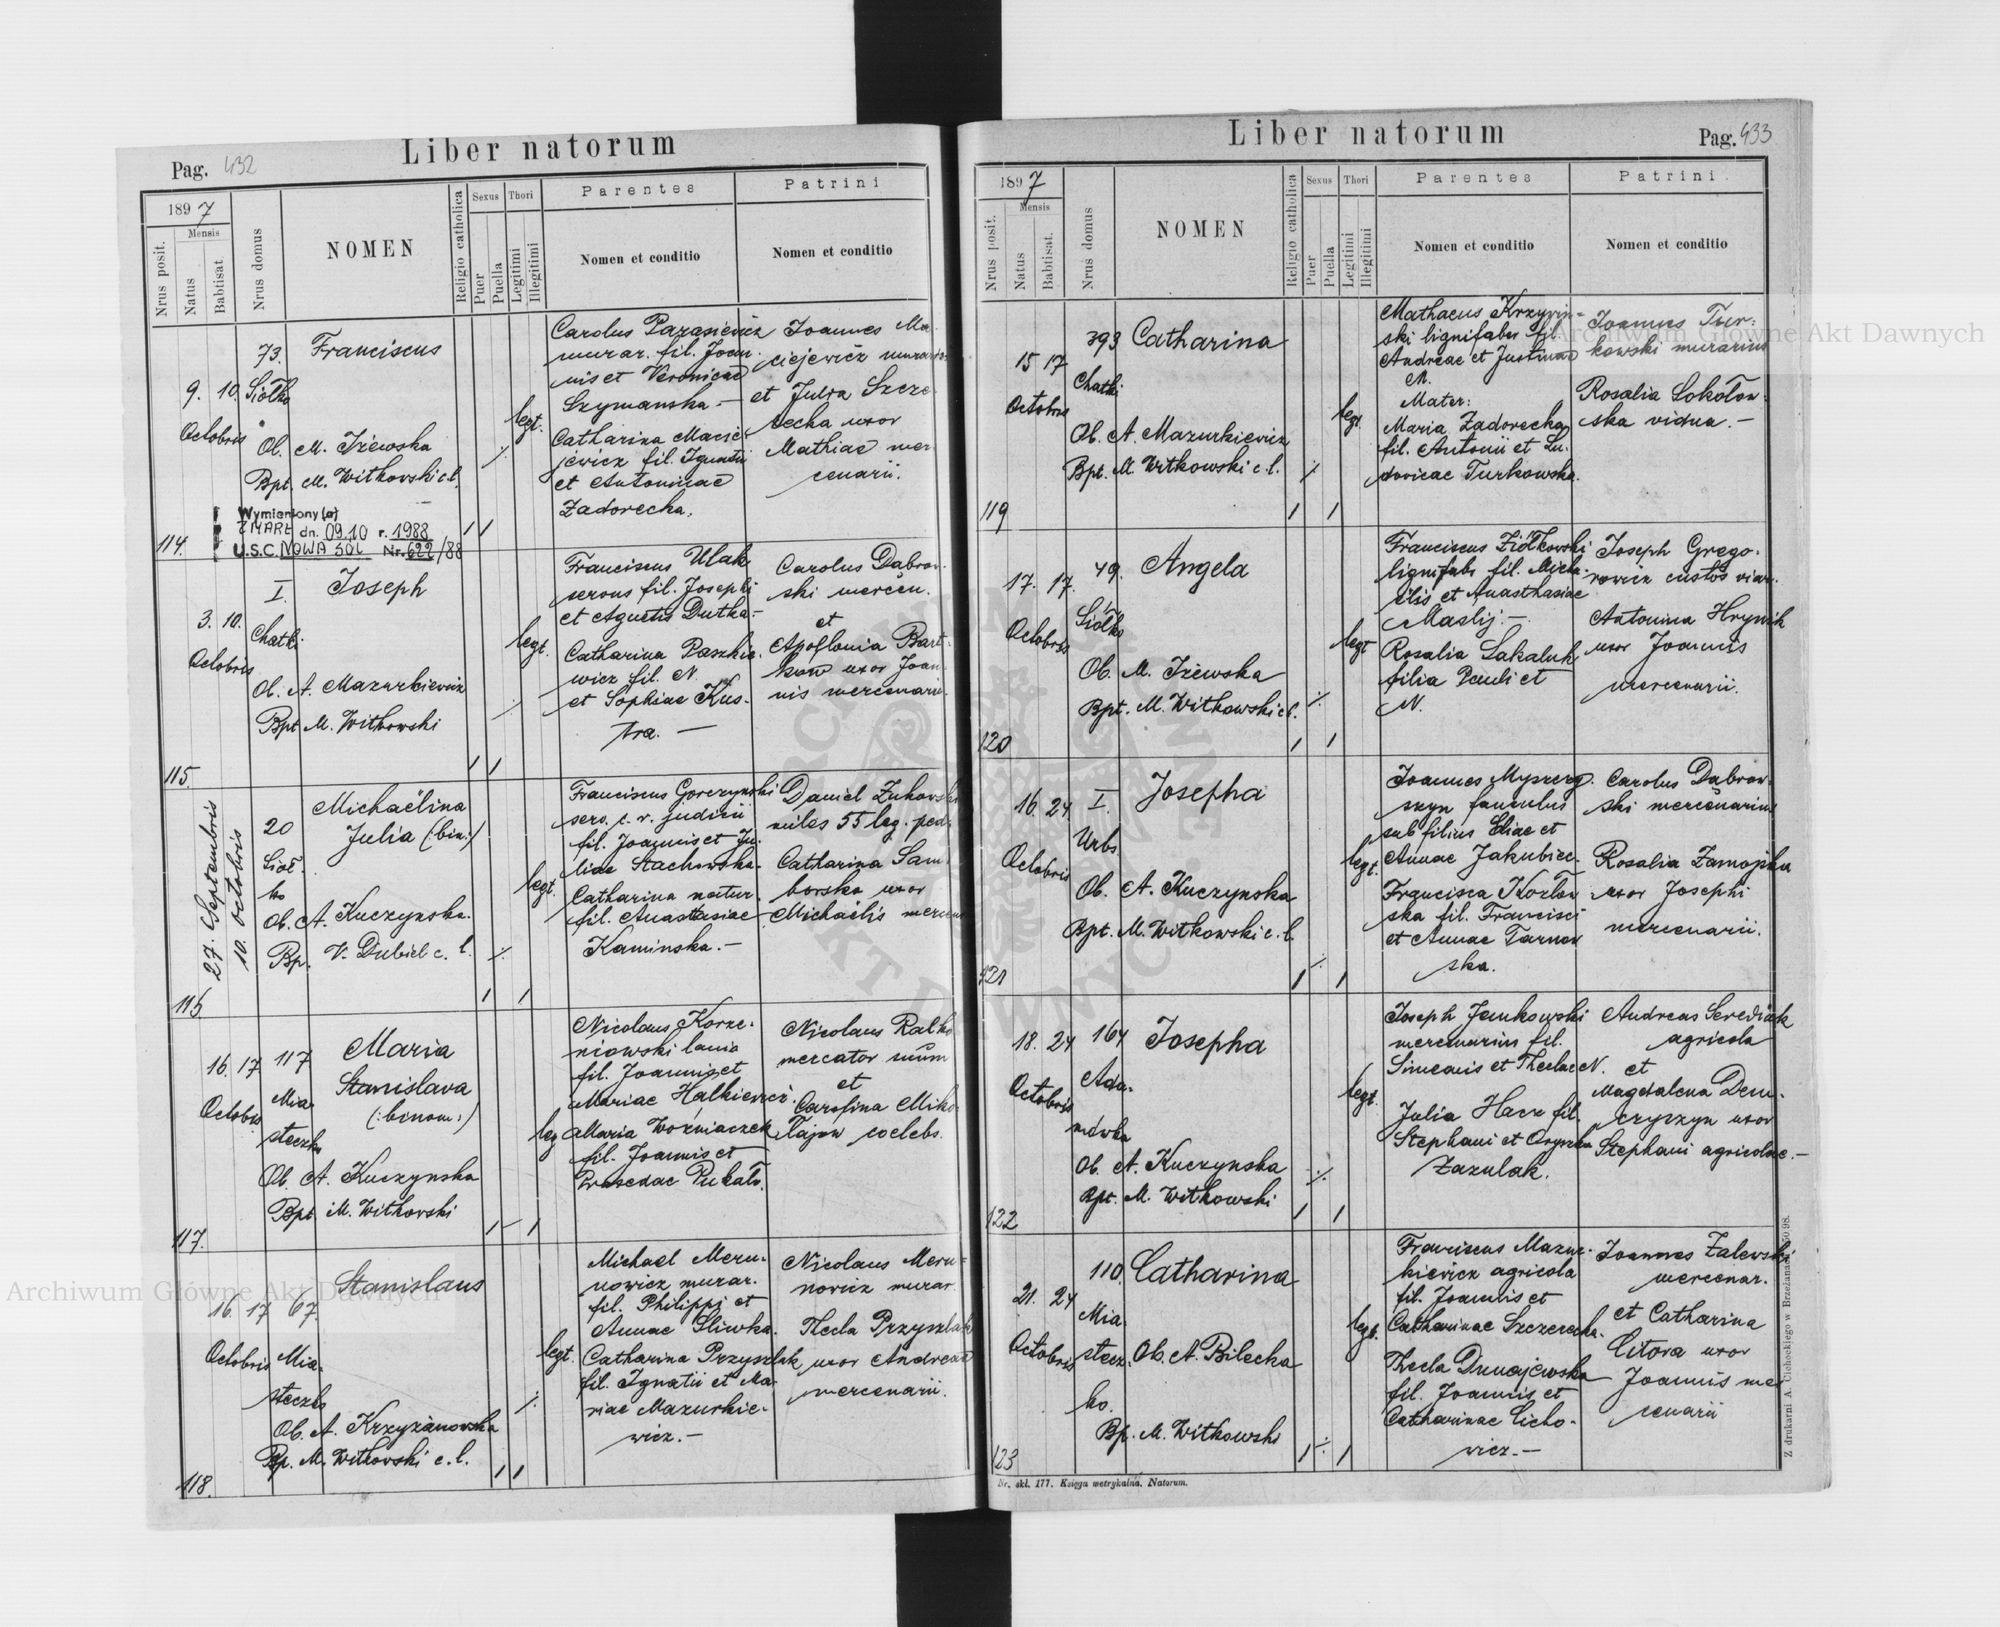 Liber natorum
Pag. 432
1897
Mensis
Nrus posit.
Natus
Babtisat.
Nrus domus
NOMEN
Religio catholica
Sexus
Puer
Puella
Thori
Legitimi
Illegitimi
Parentes
Nomen et conditio
Patrini
Nomen et conditio
114.
9. 10.
Octobris
73.
Siółko
Franciscus
Ob. M. Iżewska
Bpt. M. Witkowski c. l.
Wymieniony (a)
ZMARŁ dn. 09.10 r. 1988
U.S.C. NOWA SÓL Nr. 622/88
legt.
Carolus Parasiewicz
murar. fil. Joan-
nis et Veronicae
Szymanska. —
Catharina Macie-
jewicz fil. Ignatii
et Antoninae
Zadorecka.
Joannes Ma-
ciejewicz murarius
et Julia Szcze-
recka uxor
Mathiae mer-
cenarii.
115.
3. 10.
Octobris
I.
Chatki
Joseph
Ob. A. Mazurkiewicz
Bpt. M. Witkowski
legt.
Franciscus Ulak
servus fil. Josephi
et Agnetis Dutka. —
Catharina Paszkie-
wicz fil. N.
et Sophiae Kus-
tra. —
Carolus Dąbrow-
ski mercen.
et
Apollonia Bart-
ków uxor Joan-
nis mercenarii.
116.
27. Septembris
10. Octobris
20
Siół-
ko
Michaëlina
Julia (:bin:)
Ob. A. Kuczynska.
Bp. V. Dubiel c. l.
legt.
Franciscus Gorczynski
serv. c. r. judicii
fil. Joannis et Ju-
liae Stachowska.
Catharina natur.
fil. Anastasiae
Kaminska. —
Daniel Zukowski
miles 55 leg. ped.
Catharina Sam-
borska uxor
Michaëlis mercen.
117.
16. 17
Octobris
117
Mia-
steczko
Maria
Stanislava
(:binom:)
Ob. A. Kuczynska
Bpt. M. Witkowski
leg
Nicolaus Korze-
niowski lanio
fil. Joannis et
Mariae Halkiewicz.
Maria Woźniaczek
fil. Joannis et
Praxedae Pukało.
Nicolaus Ratko
mercator
et
Carolina Miko-
łajów coelebs.
118.
16. 17
Octobris
67.
Mia-
steczko
Stanislaus
Ob. A. Krzyżanowska
Bp. M. Witkowski c. l.
legt.
Michael Meru-
nowicz murar.
fil. Philippi et
Annae Sliwka.
Catharina Przyszlak
fil. Ignatii et Ma-
riae Mazurkie-
wicz. —
Nicolaus Meru-
nowicz murar.
Thecla Przyszlak
uxor Andreae
mercenarii.
Liber natorum
Pag. 433
1897
Mensis
Nrus posit.
Natus
Babtisat.
Nrus domus
NOMEN
Religio catholica
Sexus
Puer
Puella
Thori
Legitimi
Illegitimi
Parentes
Nomen et conditio
Patrini
Nomen et conditio
119
15 17
Octobris
393
Chatki
Catharina
Ob. A. Mazurkiewicz
Bpt. M. Witkowski c. l.
legt
Mathaeus Krzywin-
ski lignifaber fil.
Andreae et Justinae
N.
Mater:
Maria Zadorecka
fil. Antonii et Lu-
dovicae Turkowska.
Joannes Tur-
kowski murarius
Rosalia Sokołow-
ska vidua. —
120
17. 17.
Octobris
49.
Siółko
Angela
Ob. M. Iżewska
Bpt. M. Witkowski c. l.
legt
Franciscus Ziółkowski
lignifab. fil. Micha-
ëlis et Anasthasiae
Maslij. —
Rosalia Sakaluk
filia Pauli et
N.
Joseph Grego-
rowicz custos viar.
Antonina Hrynik
uxor Joannis
mercenarii.
121
16. 24
Octobris
I.
Urbs
Josepha
Ob. A. Kuczynska
Bpt. M. Witkowski c. l.
legt.
Joannes Myszczy-
szyn famulus
sub filius Eliae et
Annae Jakubiec.
Francisca Kozłow-
ska fil. Francisci
et Annae Tarnow-
ska.
Carolus Dąbrow-
ski mercenarius
Rosalia Zamojska
uxor Josephi
mercenarii.
122
18. 24
Octobris
164
Ada-
mówka
Josepha
Ob. A. Kuczynska
Bpt. M. Witkowski
legt.
Joseph Jankowski
mercenarius fil.
Simeonis et Theclae N.
Julia Hacz fil.
Stephani et
Zazulak.
Andreas Serediak
agricola
et
Magdalena Dem-
czyszyn uxor
Stephani agricolae. —
123
21. 24
Octobris
110.
Mia-
stecz-
ko.
Catharina
Ob. A. Bilecka
Bp. M. Witkowski
legt.
Franciscus Mazur-
kiewicz agricola
fil. Joannis et
Catharinae Szczerecka.
Thecla Dunajewska
fil. Joannis et
Catharinae Cicho-
wicz. —
Joannes Zalewski
mercenar.
et Catharina
Citora uxor
Joannis mer-
cenarii
Nr. skl. 177. Księga metrykalna. Natorum.
Z drukarni A. Cichockiego w Brzeżanach
Archiwum Główne Akt Dawnych
Archiwum Główne Akt Dawnych